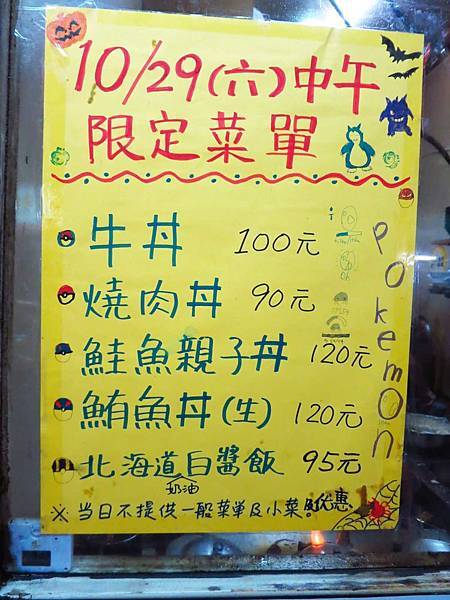 10/29(六)中午
限定菜單
牛丼 100元
燒肉丼 90元
鮭魚親子丼 120元
鮪魚丼(生) 120元
北海道白醬飯 95元
奶油
※ 當日不提供一般菜單及小菜優惠
pokemon